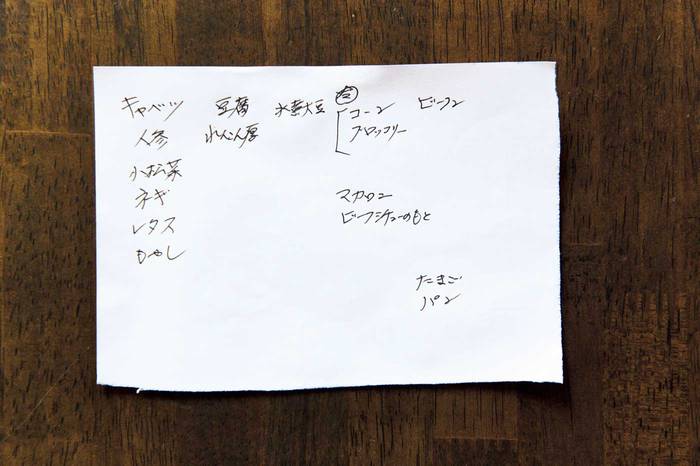 キャベツ 豆腐 水煮大豆 コーン ビーフン
人参 れんこん厚 ブロッコリー
小松菜
ネギ マカロン
レタス ビーフシチューのもと
もやし
たまご
パン